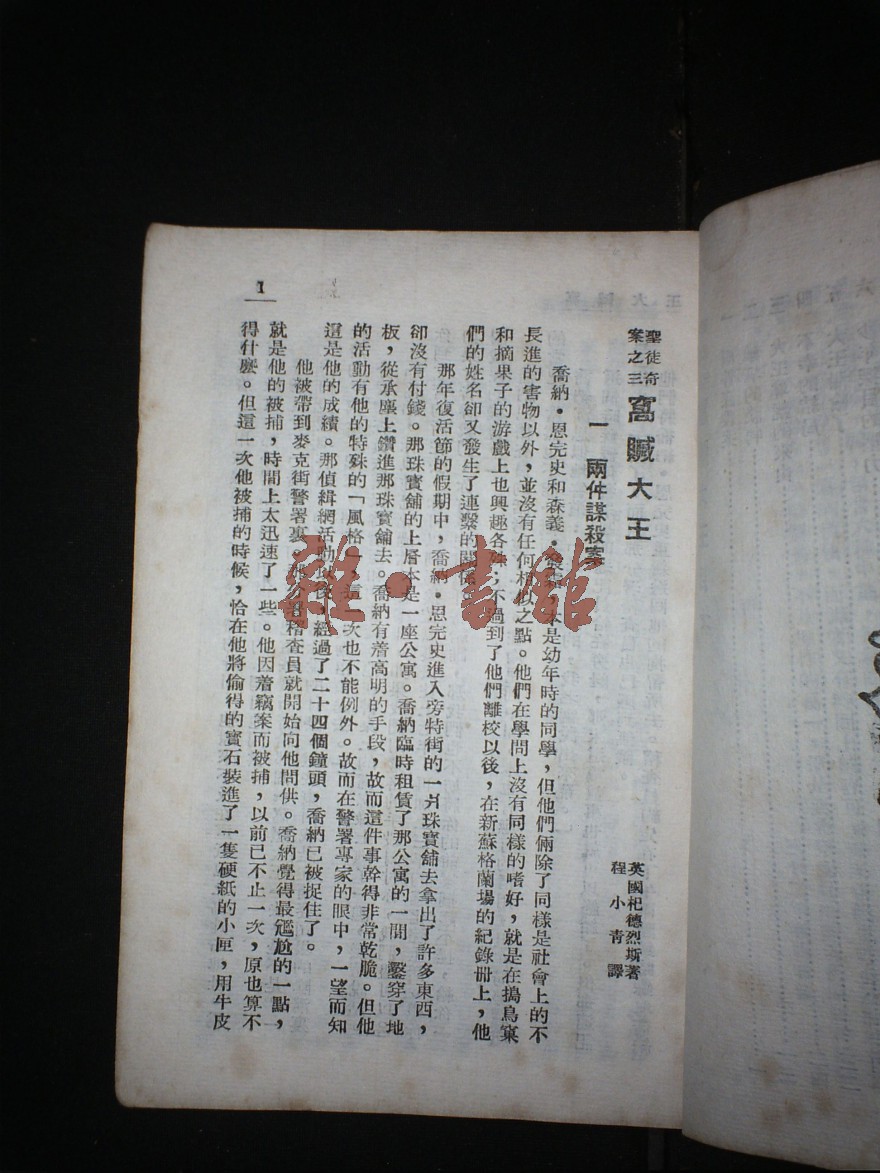 聖徒奇案之三
窩贓大王
英國杞德烈斯著
程小青譯
一 兩件謀殺案
喬納·恩完史和森義·
本是幼年時的同學，但他們倆除了同樣是社會上的不
長進的害物以外，並沒有任何相似之點。他們在學問上沒有同樣的嗜好，就是在搗鳥窠
和摘果子的游戲上也興趣各殊；不過到了他們離校以後，在新蘇格蘭場的紀錄冊上，他
們的姓名卻又發生了連繫的關係。
那年復活節的假期中，喬納·恩完史進入旁特街的一爿珠寶舖去拿出了許多東西，
卻沒有付錢。那珠寶舖的上層本是一座公寓。喬納臨時租賃了那公寓的一間，鑿穿了地
板，從承塵上鑽進那珠寶舖去。喬納有着高明的手段，故而這件事幹得非常乾脆。但他
的活動有他的特殊的「風格」，這一次也不能例外。故而在警署專家的眼中，一望而知
這是他的成績。那偵緝網活動以後，經過了二十四個鐘頭，喬納已被捉住了。
他被帶到麥克街警署裏。
稽查員就開始向他問供。喬納覺得最尷尬的一點，
就是他的被捕，時間上太迅速了一些。他因着竊案而被捕，以前已不止一次，原也算不
得什麼。但這一次他被捕的時候，恰在他將偷得的寶石裝進了一隻硬紙的小匣，用牛皮
1
雜·書館